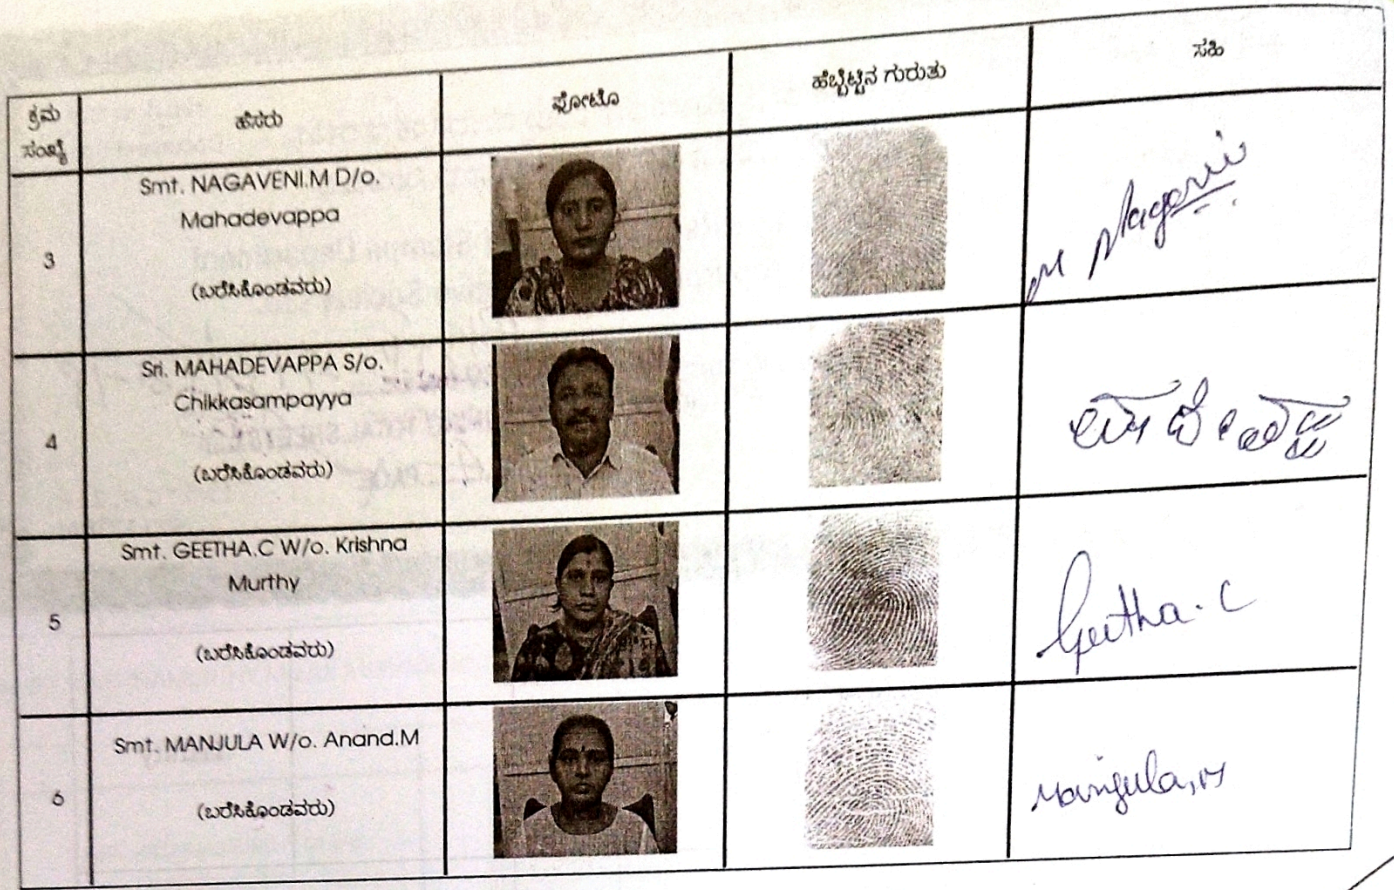 ಕ್ರಮ ಸಂಖ್ಯೆ ಹೆಸರು ಫೋಟೊ ಹೆಬ್ಬೆಟ್ಟಿನ ಗುರುತು ಸಹಿ
Smt. NAGAVENI.M D/o.
Mahadevappa
3
(ಬರೆಸಿಕೊಂಡವರು)
Sri. MAHADEVAPPA S/o.
Chikkasampayya
4
(ಬರೆಸಿಕೊಂಡವರು)
ಮಾದೇವಪ್ಪ
Smt. GEETHA.C W/o. Krishna
Murthy
5
(ಬರೆಸಿಕೊಂಡವರು)
Geetha.C
Smt. MANJULA W/o. Anand.M
6
(ಬರೆಸಿಕೊಂಡವರು)